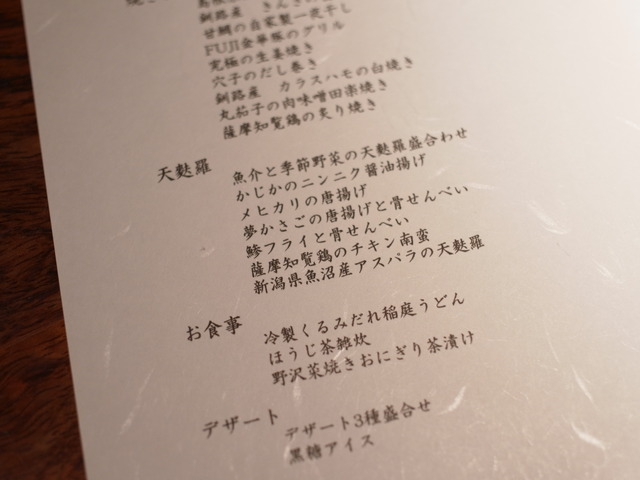 釧路産 きんき
甘鯛の自家製一夜干し
FUJI金華豚のグリル
究極の生姜焼き
穴子のだし巻き
釧路産 カラスハモの白焼き
丸茄子の肉味噌田楽焼き
薩摩知覧鶏の炙り焼き
天麩羅
魚介と季節野菜の天麩羅盛合わせ
かじかのニンニク醤油揚げ
メヒカリの唐揚げ
夢かさごの唐揚げと骨せんべい
鯵フライと骨せんべい
薩摩知覧鶏のチキン南蛮
新潟県魚沼産アスパラの天麩羅
お食事
冷製くるみだれ稲庭うどん
ほうじ茶雑炊
野沢菜焼きおにぎり茶漬け
デザート
デザート3種盛合せ
黒糖アイス